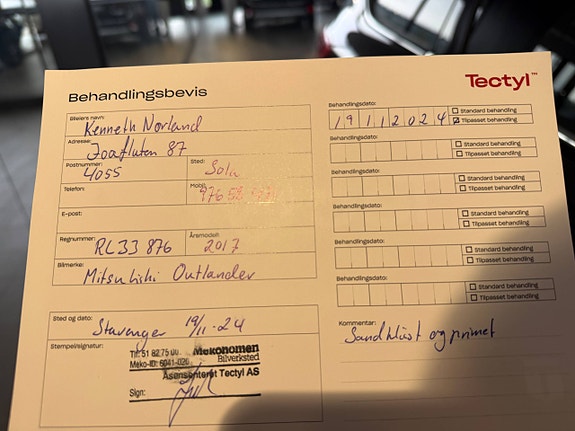 Tectyl™
Behandlingsbevis
Bileiers navn:
Kenneth Norland
Adresse:
Joafluten 87
Postnummer: Sted:
4055 Sola
Telefon: Mobil:
976 58
E-post:
Regnummer: Årsmodell:
RL33 876 2017
Bilmerke:
Mitsubishi Outlander
Sted og dato:
Stavanger 19/11-24
Stempel/signatur:
Tlf: 51 82 75 00 Mekonomen
Bilverksted
Meko-ID: 6041-020
Åsensenteret Tectyl AS
Sign:
Behandlingsdato:
19112024
Standard behandling
Tilpasset behandling
Behandlingsdato:
Standard behandling
Tilpasset behandling
Behandlingsdato:
Standard behandling
Tilpasset behandling
Behandlingsdato:
Standard behandling
Tilpasset behandling
Behandlingsdato:
Standard behandling
Tilpasset behandling
Behandlingsdato:
Standard behandling
Tilpasset behandling
Kommentar:
Sandblåst og primet